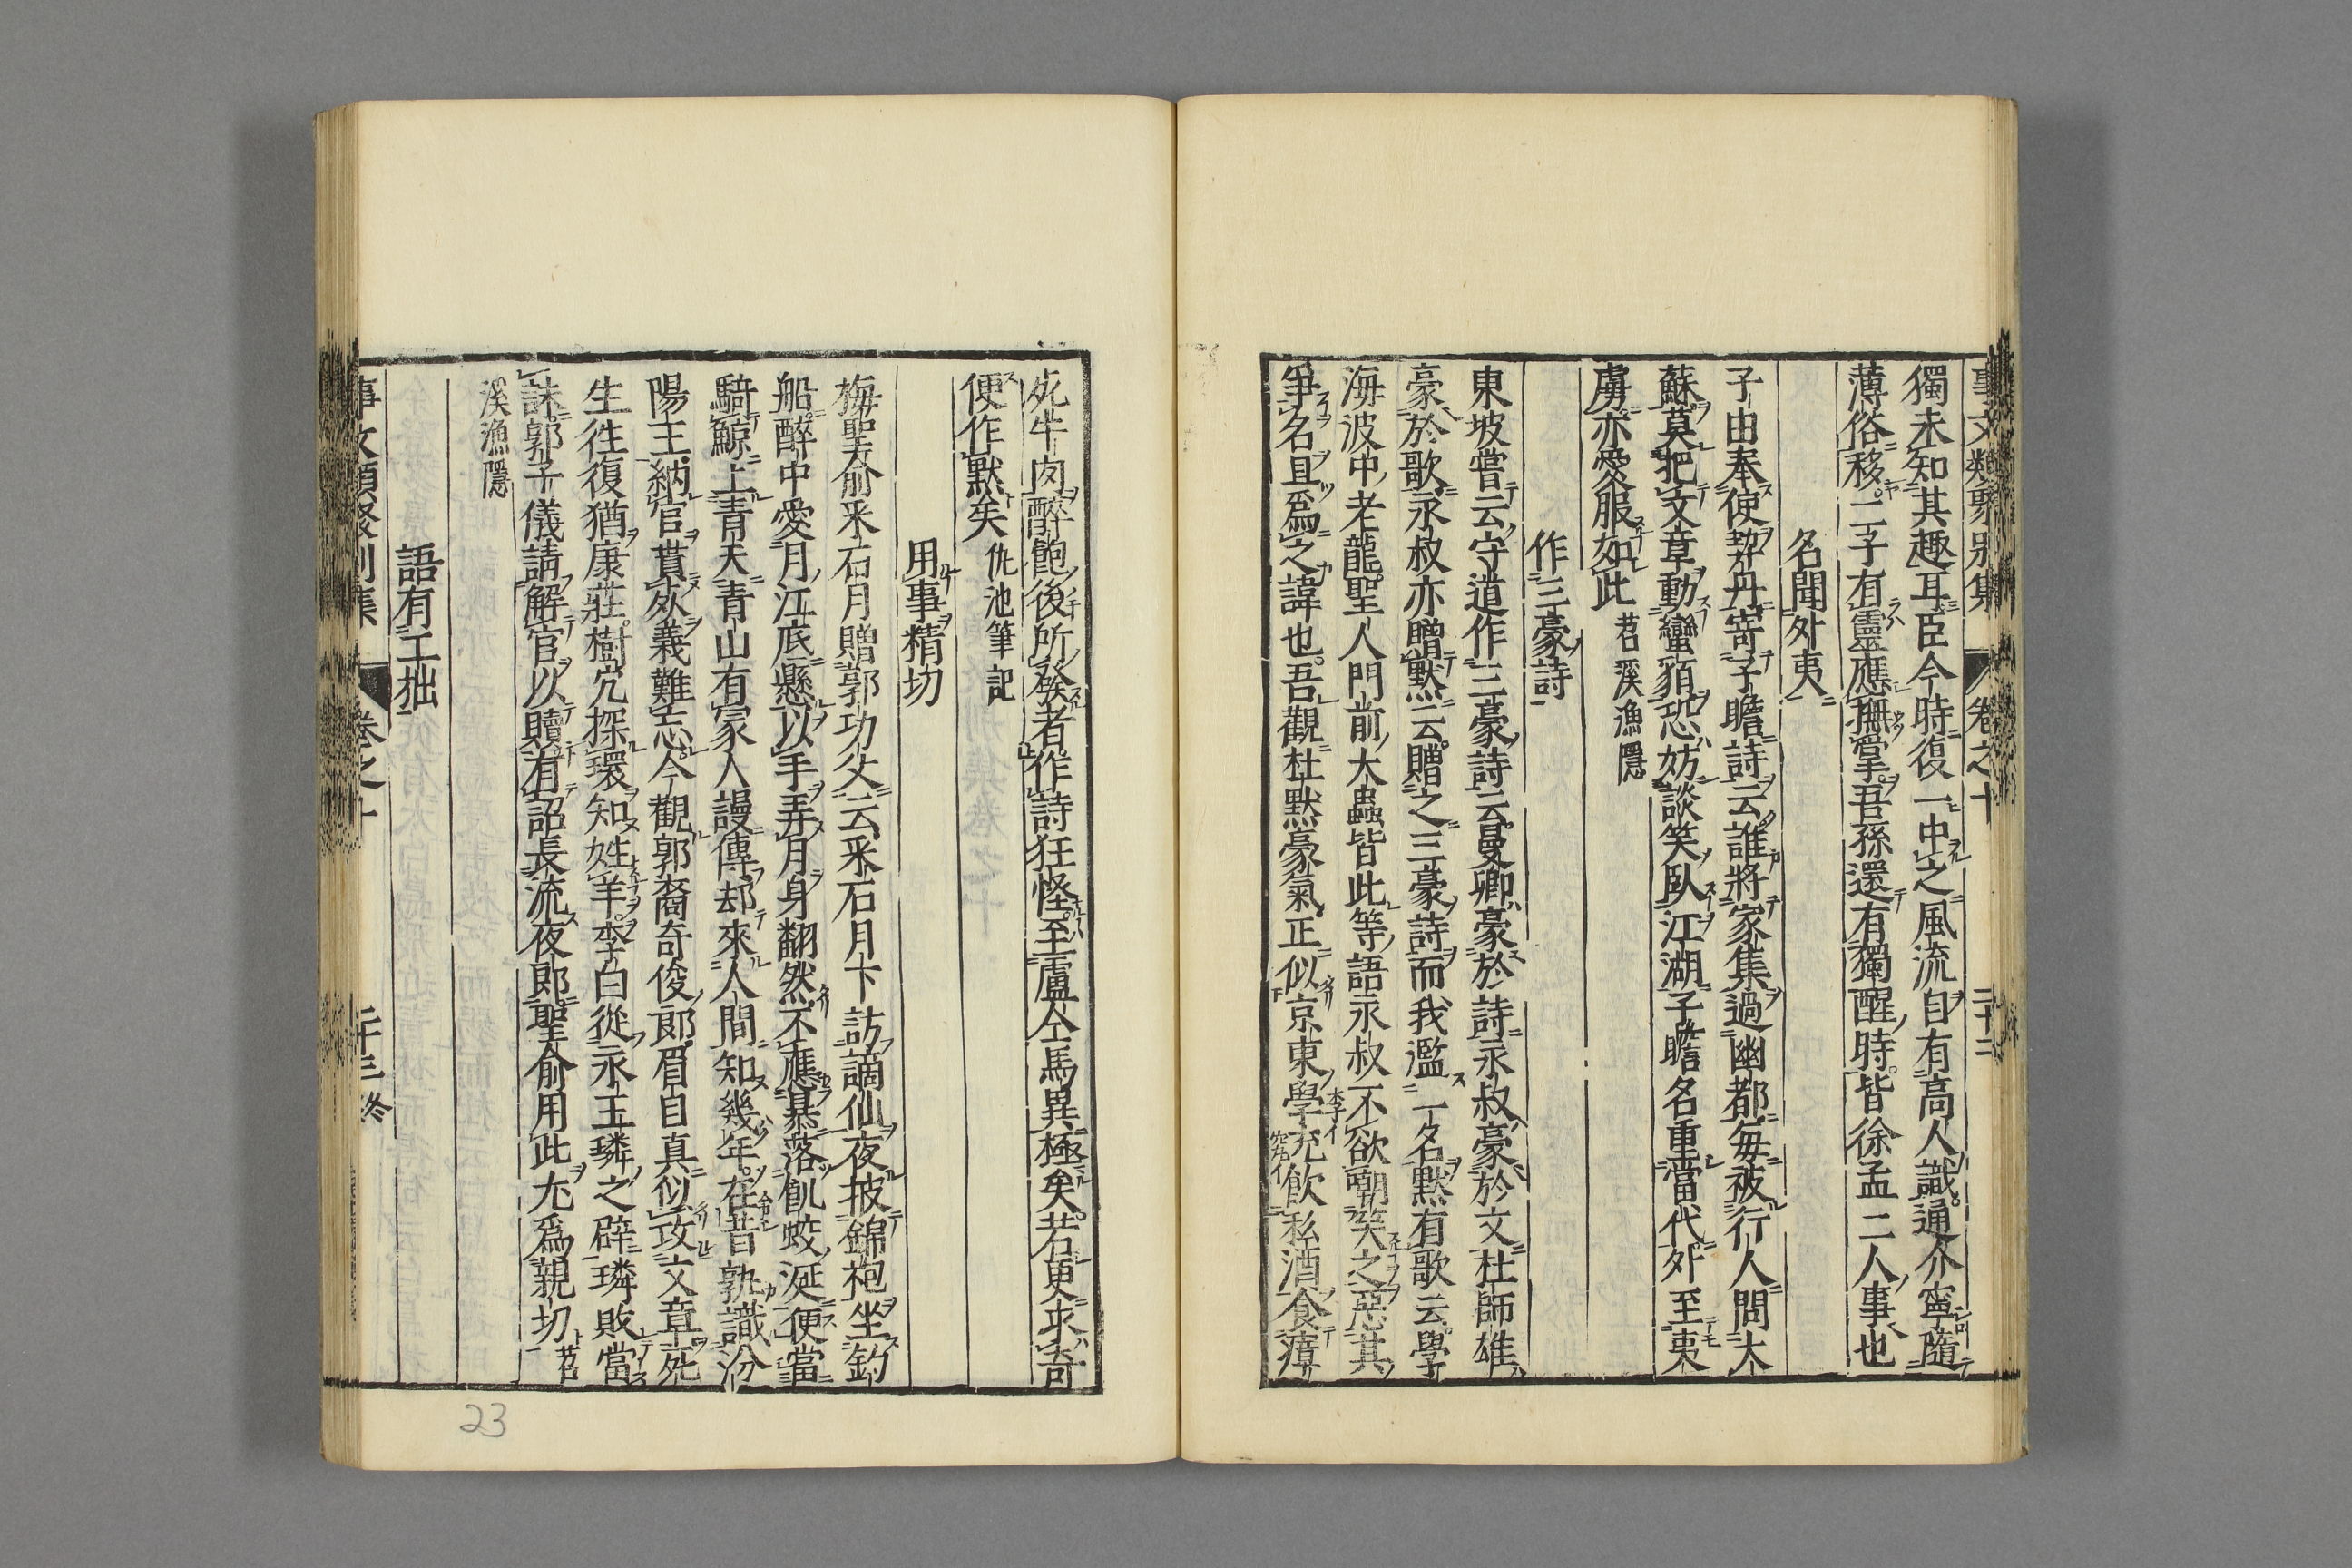 事文類聚別集 卷之十 二十二
獨未知其趣耳臣今時復一中之風流自有高人識通介寧隨
薄俗移二子有靈應撫掌吾孫還有獨醒時皆徐孟二人事也
名聞外夷
子由奉使契丹寄子瞻詩云誰將家集過幽都每被行人問大
蘇莫把文章動蠻貊恐妨談笑臥江湖子瞻名重當代外至夷
虜亦愛服如此苕溪漁隱
作三豪詩
東坡嘗云守道作三豪詩云曼卿豪於詩永叔豪於文杜師雄
豪於歌永叔亦贈默云贈之三豪詩而我濫一名默有歌云學
海波中老龍聖人門前大蟲皆此等語永叔不欲嘲笑之惡其
爭名且爲之諱也吾觀杜默豪氣正似京東學究飲私酒食瘴
死牛肉醉飽後所發者作詩狂怪至盧仝馬異極矣若更求奇
便作默矣仇池筆記
用事精切
梅聖俞采石月贈郭功父云采石月下訪謫仙夜披錦袍坐釣
船醉中愛月江底懸以手弄月身翻然不應暴落飢蛟涎便當
騎鯨上青天青山有冢人謾傳却來人間知幾年在昔孰識汾
陽王納官貰死義難忘今觀郭裔奇俊郎眉目真似攻文章死
生往復猶康莊樹穴探環知姓羊李白從永王璘之辟璘敗當
誅郭子儀請解官以贖有詔長流夜郎聖俞用此尤爲親切苕
溪漁隱
語有工拙
事文類聚別集 卷之十 二十三終
23